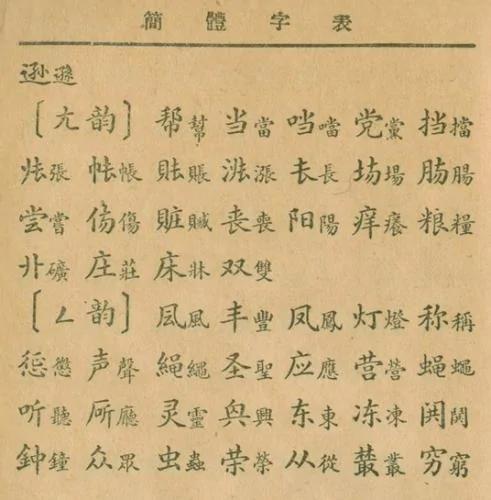 簡體字表
逊遜
［ㄤ韵］ 帮幫 当當 𪠽噹 党黨 挡擋
张張 帐帳 账賬 涨漲 长長 场場 肠腸
尝嘗 伤傷 赃贓 丧喪 阳陽 痒癢 粮糧
卝礦 庄莊 床牀 双雙
［ㄥ韵］ 凨風 丰豐 凤鳳 灯燈 称稱
惩懲 声聲 縄繩 圣聖 应應 营營 蝇蠅
听聽 厛廳 灵靈 兴興 东東 冻凍 閧鬨
鈡鐘 众眾 虫蟲 荣榮 从從 䕺叢 穷窮